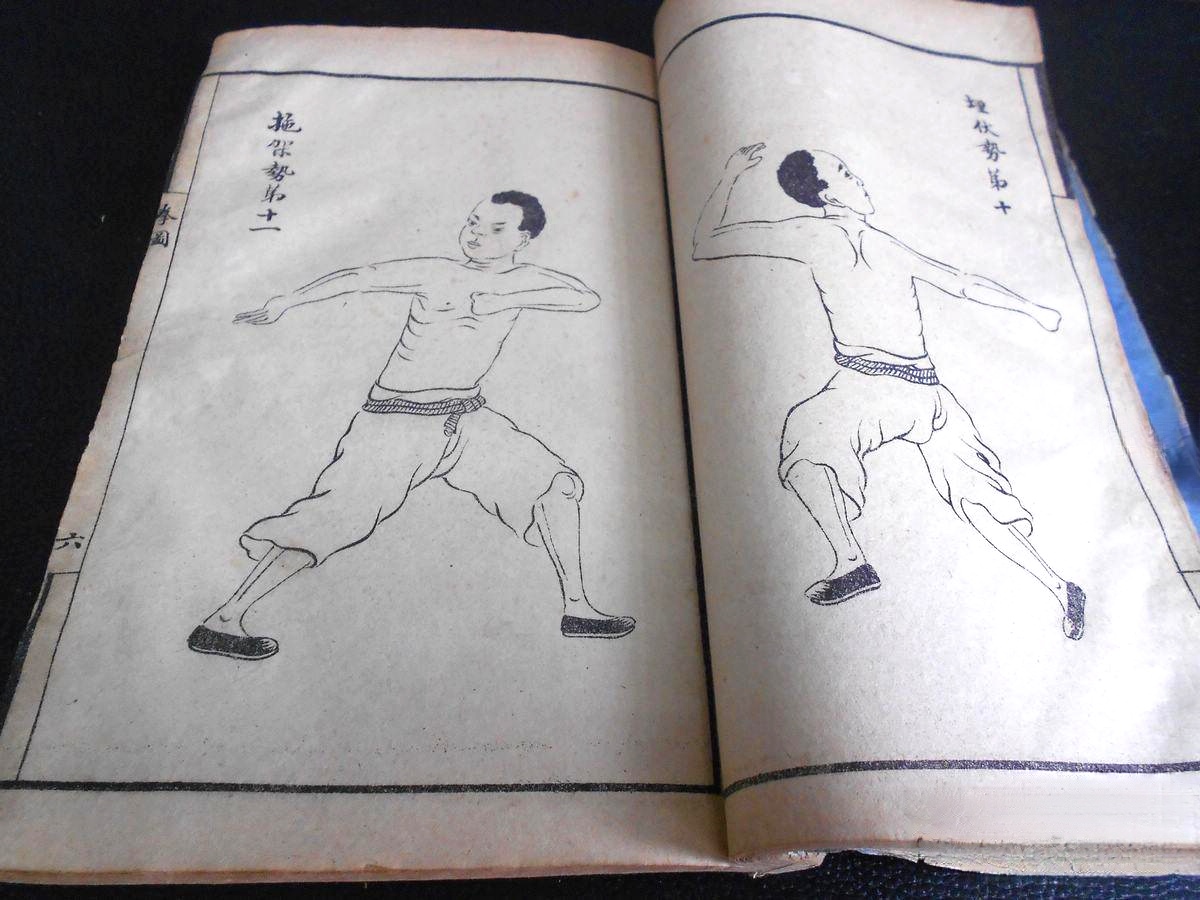 埋伏勢第十
拖架勢第十一
拳圖
六